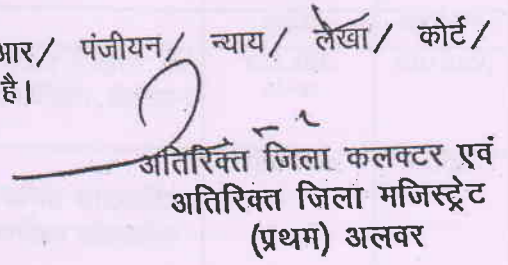 आर/ पंजीयन/ न्याय/ लेखा/ कोर्ट/
है।
अतिरिक्त जिला कलक्टर एवं
अतिरिक्त जिला मजिस्ट्रेट
(प्रथम) अलवर